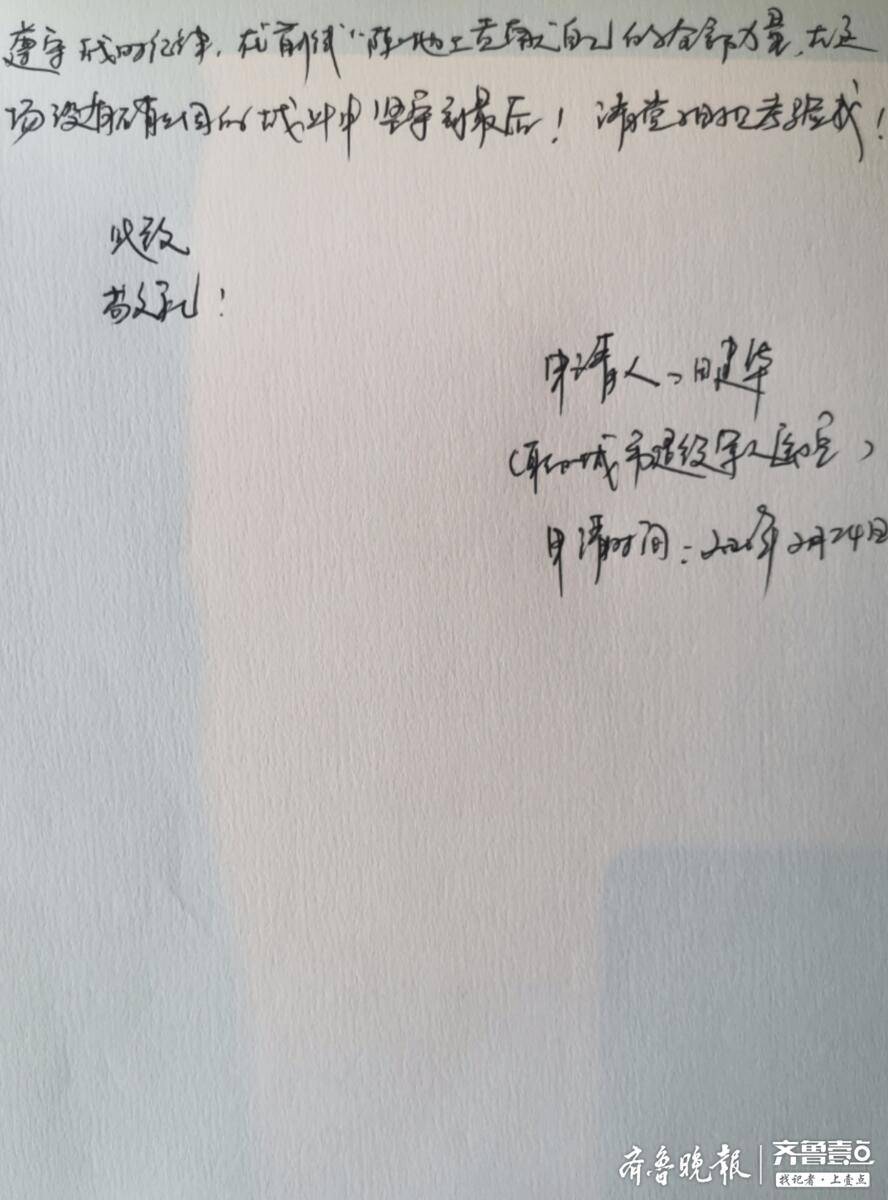 遵守战时纪律,在前线“阵地上贡献自己的全部力量,在这
场没有硝烟的战斗中坚守到最后!请党组织考验我!
此致
敬礼!
申请人:田建华
(聊城市退役军人医院)
申请时间:2020年2月24日
齐鲁晚报 齐鲁壹点
找记者·上壹点